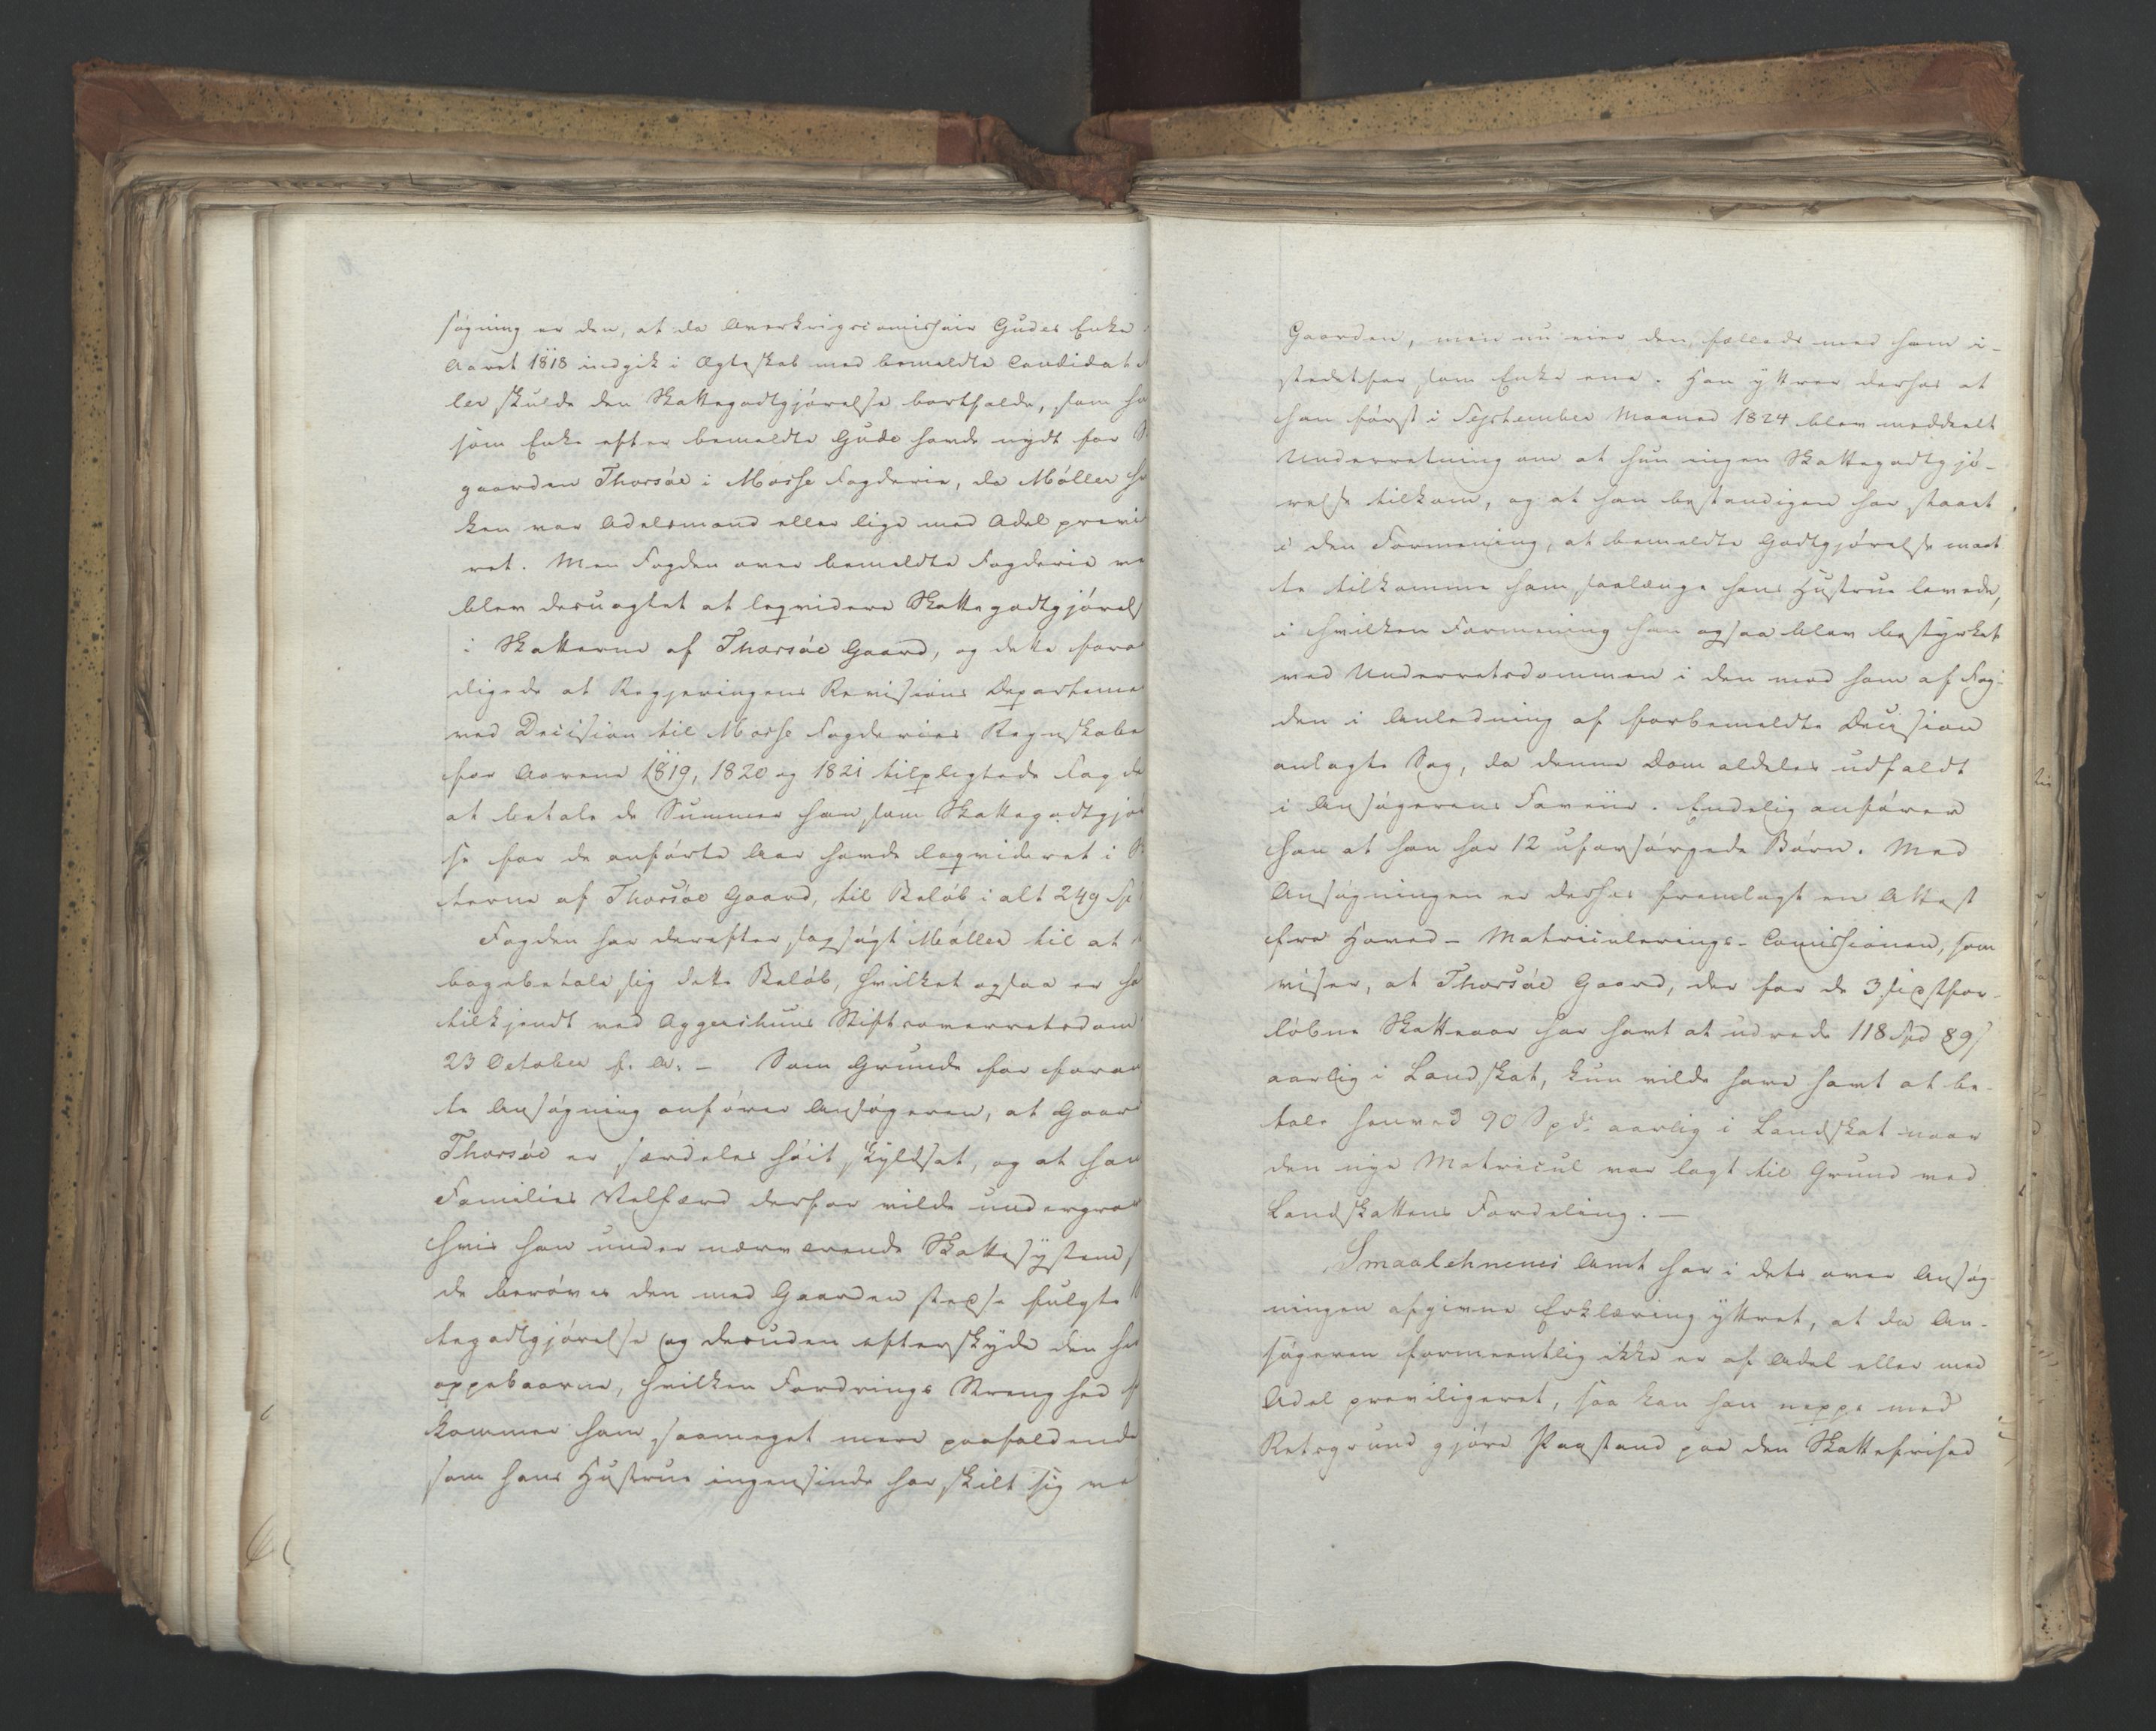 søgning er den, at da Overkrigscomissair Gudes Enke
Aaret 1818 indgik i Ægteskab med bemeldte Candidat
ler skulde den Skattegodtgjørelse bortfalde, som h
som Enke efter bemeldte Gude havde nydt for
gaarden Thorsøe i Mosse Fogderie, da Møller h
ken var Adelsmand eller lige med Adel previ
ret. Men Fogden over bemeldte Fogderie ve
blev desuagtet at leqvidere Skattegodtgjørels
i Skatterne af Thorsøe Gaard, og dette foran
digede at Regjeringens Revisions Departeme
ved Decision til Mosse Fogderies Regnskabe
for Aarene 1819, 1820 og 1821 tilpligtede Fogde
at betale de Summer han som Skattegodtgjø
se for de anførte Aar havde leqvideret i
terne af Thorsøe Gaard, til Beløb i alt 249 Sp
Fogden har derefter sagsøgt Møller til at
bagebetale sig dette Beløb, hvilket ogsaa er h
tilkjendt ved Aggershuus Stiftsoverretsdom
23 October f. A. – Som Grunde for foran
te Ansøgning anfører Ansøgeren, at Gaar
Thorsøe er særdeles høit skyldsat, og at han
Families Velfærd derfor vilde undergra
hvis han under nærværende Skattesystem
de berøves den med Gaarden stedse fulgte
tegodtgjørelse og desuden efterskyde den h
oppebaarne, hvilken Fordrings Strenghed
kommer ham saameget mere paafaldende
som hans Hustrue ingensinde har skilt sig ve
Gaarden, men nu eier den fælleds med ham i-
stedetfor som Enke ene. Han yttrer derhos at
han først i September Maaned 1824 blev meddeelt
Underretning om at hun ingen Skattegodtgjø-
relse tilkom, og at han bestandigen har staaet
i den Formening, at bemeldte Godtgjørelse maat
te tilkomme ham saalænge hans Hustrue levede,
i hvilken Formening han ogsaa blev bestyrket
ved Underretsdommen i den mod ham af Fog-
den i Anledning af forbemeldte Decision
anlagte Sag, da denne Dom aldeles udfaldt
i Ansøgerens Faveur. Endelig anfører
han at han har 12 uforsørgede Børn. Med
Ansøgningen er derhos fremlagt en Attest
fra Hoved-Matriculerings-Comissionen, som
viser, at Thorsøe Gaard, der for de 3 sidstfor-
løbne Skatteaar har havt at udrede 118 Spd 89 s
aarlig i Landskat, kun vilde have havt at be-
tale henved 90 Spd: aarlig i Landskat naar
den nye Matricul var lagt til Grund ved
Landskattens Fordeling. –
Smaalehnenes Amt har i dets over Ansøg-
ningen afgivne Erklæring yttret, at da An-
søgeren formeentlig ikke er af Adel eller med
Adel previligeret, saa kan han neppe med
Retsgrund gjøre Paastand paa den Skattefrihed